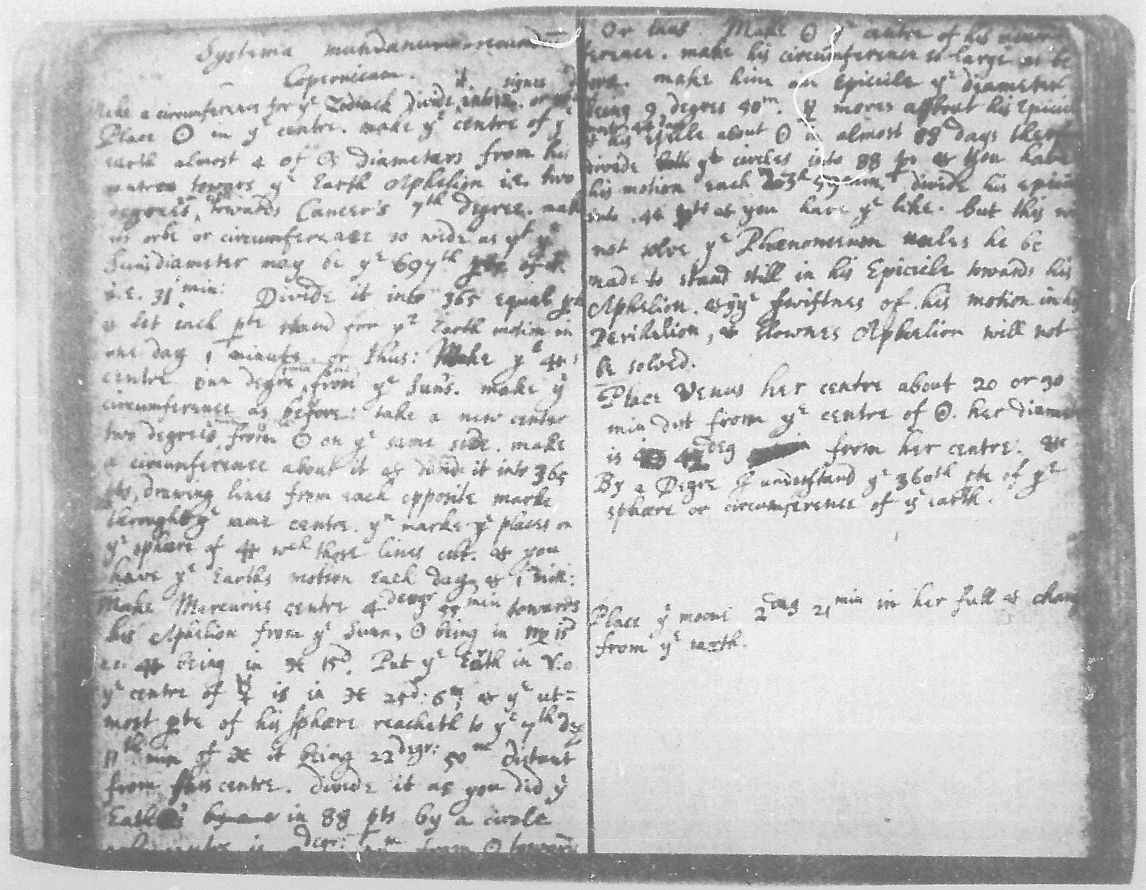 Systema mundanum secundum
Copernicum.
Take a circumference for yᵉ Zodiack divide it into 12 signes or
Place ☉ in yᵉ centre. make yᵉ centre of yᵉ
earth almost 4 of ☉s diameters from his
centre towards yᵉ Earth Aphelion i.e. two
degrees, towards Cancer's 7th degree. make
its orbe or circumference so wide as yt yᵉ
Suns diameter may be yᵉ 697th
i.e. 31 min: Divide it into 365 equal pts
& let each pte stand for yᵉ Earth motion in
one day 1 minute. Or thus: Make yᵉ
centre one degree from yᵉ Suns. make yᵉ
circumference as before: take a new center
two degrees from ☉ on yᵉ same side. make
a circumference about it & divide it into 365
pts, drawing lines from each opposite marke
through yᵉ same centre. yⁿ marke yᵉ places on
yᵉ sphære of wch those lines cut. & you
have yᵉ Earths motion each day &
Make Mercuries centre 4 degr min towards
his Aphelion from yᵉ Sunn, ☉ being in ♍ 15
being in ♓ 15d. Put yᵉ Earth in
yᵉ centre of ☿ is in ♓ 25d: 6m, & yᵉ ut=
most pte of his sphære reacheth to yᵉ 7th
11th min of ♓ it being 22degr: 50m distant
from his centre. divide it as you did yᵉ
Earths in 88 pts by a circle
degr: from ☉ towards
Or thus Make ☉ yᵉ centre of his
ference. make his circumference so large as be
fore. make him an Epicicle yᵉ diameter
being 9 degres 50m. ☿ moves about his Epicicle
& his Epicicle about ☉ in almost 88 days therefore
divide both yᵉ circles into 88 pts & you have
his motion each divide his epicicle
into 44 pts & you have yᵉ like. but this will
not solve yᵉ Phænomenon unles he be
made to stand still in his Epicicle towards his
Aphelion. & yⁿ yᵉ swiftnes of his motion in his
Perihelion, & slownes Aphelion will not
be solved.
Place Venus her centre about 20 or 30
min dist from yᵉ centre of ☉. her diameter
is deg from her centre.
By a Degre I understand yᵉ 360th pte of yᵉ
sphære or circumference of yᵉ earth.
Place yᵉ moone 2 deg 21 min in her full & change
from yᵉ earth.